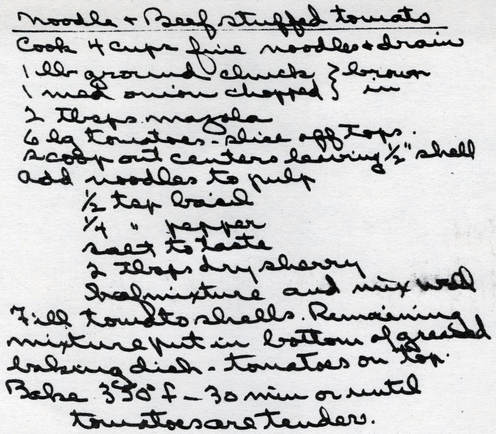 Noodle + Beef stuffed tomato
Cook 4 cups fine noodles + drain
1 lb ground chuck } brown
1 med onion chopped } in
2 tbsps. mazola
6 lg tomatoes - slice off tops.
Scoop out centers leaving 1/2" shell
Add noodles to pulp
1/2 tsp basil
1/4 " pepper
salt to taste
2 tbsps dry sherry
beef mixture and mix well
Fill tomato shells. Remaining
mixture put in bottom of greased
baking dish - tomatoes on top.
Bake 350° f - 30 min or until
tomatoes are tender.